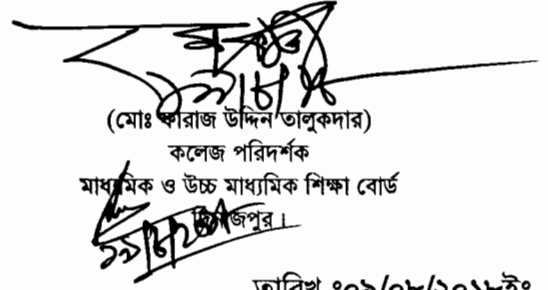 (মোঃ ফারাজ উদ্দিন তালুকদার)
কলেজ পরিদর্শক
মাধ্যমিক ও উচ্চ মাধ্যমিক শিক্ষা বোর্ড
দিনাজপুর।
তারিখ ঃ০৯/০৮/২০১৮ইং